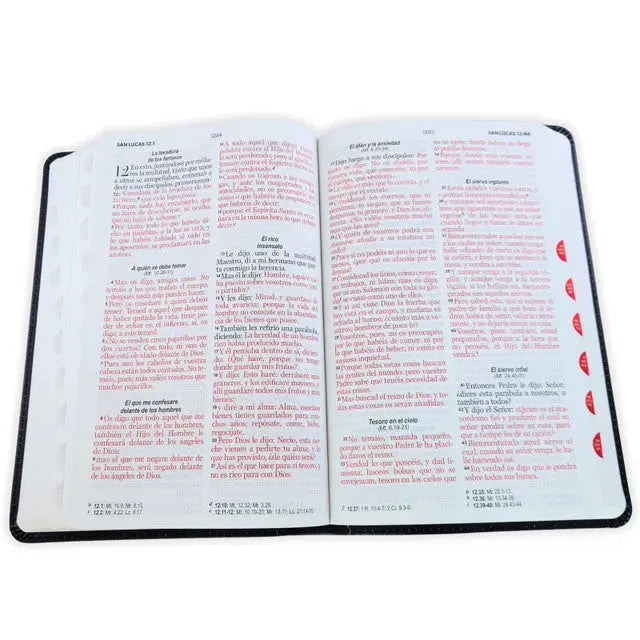 1204
SAN LUCAS 12:1
La levadura
de los fariseos
12 En esto, juntándose por milla-
res la multitud, tanto que unos
a otros se atropellaban, comenzó a
decir a sus discípulos, primeramen-
te: Guardaos de la levadura de los
fariseos, que es la hipocresía.
2 Porque nada hay encubierto, que
no haya de descubrirse; ni oculto,
que no haya de saberse.
3 Por tanto, todo lo que habéis di-
cho en tinieblas, a la luz se oirá; y
lo que habéis hablado al oído en
los aposentos, se proclamará en las
azoteas.
A quién se debe temer
(Mt. 10.26-31)
4 Mas os digo, amigos míos: No
temáis a los que matan el cuerpo,
y después nada más pueden hacer.
5 Pero os enseñaré a quién debéis
temer: Temed a aquel que después
de haber quitado la vida, tiene po-
der de echar en el infierno; sí, os
digo, a este temed.
6 ¿No se venden cinco pajarillos por
dos cuartos? Con todo, ni uno de
ellos está olvidado delante de Dios.
7 Pues aun los cabellos de vuestra
cabeza están todos contados. No te-
máis, pues; más valéis vosotros que
muchos pajarillos.
El que me confesare
delante de los hombres
8 Os digo que todo aquel que me
confesare delante de los hombres,
también el Hijo del Hombre le
confesará delante de los ángeles
de Dios;
9 mas el que me negare delante de
los hombres, será negado delante
de los ángeles de Dios.
10 A todo aquel que dijere alguna
palabra contra el Hijo del Hombre,
le será perdonado; pero al que blas-
femare contra el Espíritu Santo, no
le será perdonado.
11 Cuando os trajeren a las sinago-
gas, y ante los magistrados y las
autoridades, no os preocupéis por
cómo o qué habréis de responder,
o qué habréis de decir;
12 porque el Espíritu Santo os ense-
ñará en la misma hora lo que debáis
decir.
El rico
insensato
13 Le dijo uno de la multitud:
Maestro, di a mi hermano que par-
ta conmigo la herencia.
14 Mas él le dijo: Hombre, ¿quién me
ha puesto sobre vosotros como juez
o partidor?
15 Y les dijo: Mirad, y guardaos de
toda avaricia; porque la vida del
hombre no consiste en la abundan-
cia de los bienes que posee.
16 También les refirió una parábola,
diciendo: La heredad de un hombre
rico había producido mucho.
17 Y él pensaba dentro de sí, dicien-
do: ¿Qué haré, porque no tengo
dónde guardar mis frutos?
18 Y dijo: Esto haré: derribaré mis
graneros, y los edificaré mayores, y
allí guardaré todos mis frutos y mis
bienes;
19 y diré a mi alma: Alma, muchos
bienes tienes guardados para mu-
chos años; repósate, come, bebe,
regocíjate.
20 Pero Dios le dijo: Necio, esta no-
che vienen a pedirte tu alma; y lo
que has provisto, ¿de quién será?
21 Así es el que hace para sí tesoro, y
no es rico para con Dios.
12.1: Mt. 16.6; Mr. 8.15.
12.2: Mr. 4.22; Lc. 8.17.
12.10: Mt. 12.32; Mr. 3.29.
12.11-12: Mt. 10.19-20; Mr. 13.11; Lc. 21.14-15.
1205
SAN LUCAS 12:44
El afán y la ansiedad
(Mt. 6.25-34)
22 Dijo luego a sus discípulos: Por
tanto os digo: No os afanéis por
vuestra vida, qué comeréis; ni por
el cuerpo, qué vestiréis.
23 La vida es más que la comida, y el
cuerpo que el vestido.
24 Considerad los cuervos, que ni
siembran, ni siegan; que ni tienen
despensa, ni granero, y Dios los ali-
menta. ¿No valéis vosotros mucho
más que las aves?
25 ¿Y quién de vosotros podrá con
afanarse añadir a su estatura un
codo?
26 Pues si no podéis ni aun lo que es
menos, ¿por qué os afanáis por lo
demás?
27 Considerad los lirios, cómo crecen;
no trabajan, ni hilan; mas os digo,
que ni aun Salomón con toda su glo-
ria se vistió como uno de ellos.
28 Y si así viste Dios la hierba que
hoy está en el campo, y mañana es
echada al horno, ¿cuánto más a vo-
sotros, hombres de poca fe?
29 Vosotros, pues, no os preocupéis
por lo que habéis de comer, ni por
lo que habéis de beber, ni estéis en
ansiosa inquietud.
30 Porque todas estas cosas buscan
las gentes del mundo; pero vuestro
Padre sabe que tenéis necesidad de
estas cosas.
31 Mas buscad el reino de Dios, y to-
das estas cosas os serán añadidas.
Tesoro en el cielo
(Mt. 6.19-21)
32 No temáis, manada pequeña,
porque a vuestro Padre le ha placi-
do daros el reino.
33 Vended lo que poseéis, y dad li-
mosna; haceos bolsas que no se
envejezcan, tesoro en los cielos que
no se agote, donde ladrón no llega,
ni polilla destruye.
34 Porque donde está vuestro teso-
ro, allí estará también vuestro co-
razón.
El siervo vigilante
35 Estén ceñidos vuestros lomos, y
vuestras lámparas encendidas;
36 y vosotros sed semejantes a hom-
bres que aguardan a que su señor
regrese de las bodas, para que
cuando llegue y llame, le abran en
seguida.
37 Bienaventurados aquellos siervos
a los cuales su señor, cuando venga,
halle velando; de cierto os digo que
se ceñirá, y hará que se sienten a la
mesa, y vendrá a servirles.
38 Y aunque venga a la segunda vi-
gilia, y aunque venga a la tercera
vigilia, si los hallare así, bienaven-
turados son aquellos siervos.
39 Pero sabed esto, que si supiese el
padre de familia a qué hora el la-
drón había de venir, velaría cierta-
mente, y no dejaría minar su casa.
40 Vosotros, pues, también, estad
preparados, porque a la hora que
no penséis, el Hijo del Hombre
vendrá.
El siervo infiel
(Mt. 24.45-51)
41 Entonces Pedro le dijo: Señor,
¿dices esta parábola a nosotros, o
también a todos?
42 Y dijo el Señor: ¿Quién es el ma-
yordomo fiel y prudente al cual su
señor pondrá sobre su casa, para
que a tiempo les dé su ración?
43 Bienaventurado aquel siervo al
cual, cuando su señor venga, le ha-
lle haciendo así.
44 En verdad os digo que le pondrá
sobre todos sus bienes.
12.27: 1 R. 10.4-7; 2 Cr. 9.3-6.
12.35: Mt. 25.1-13.
12.36: Mr. 13.34-36.
12.39-40: Mt. 24.43-44.